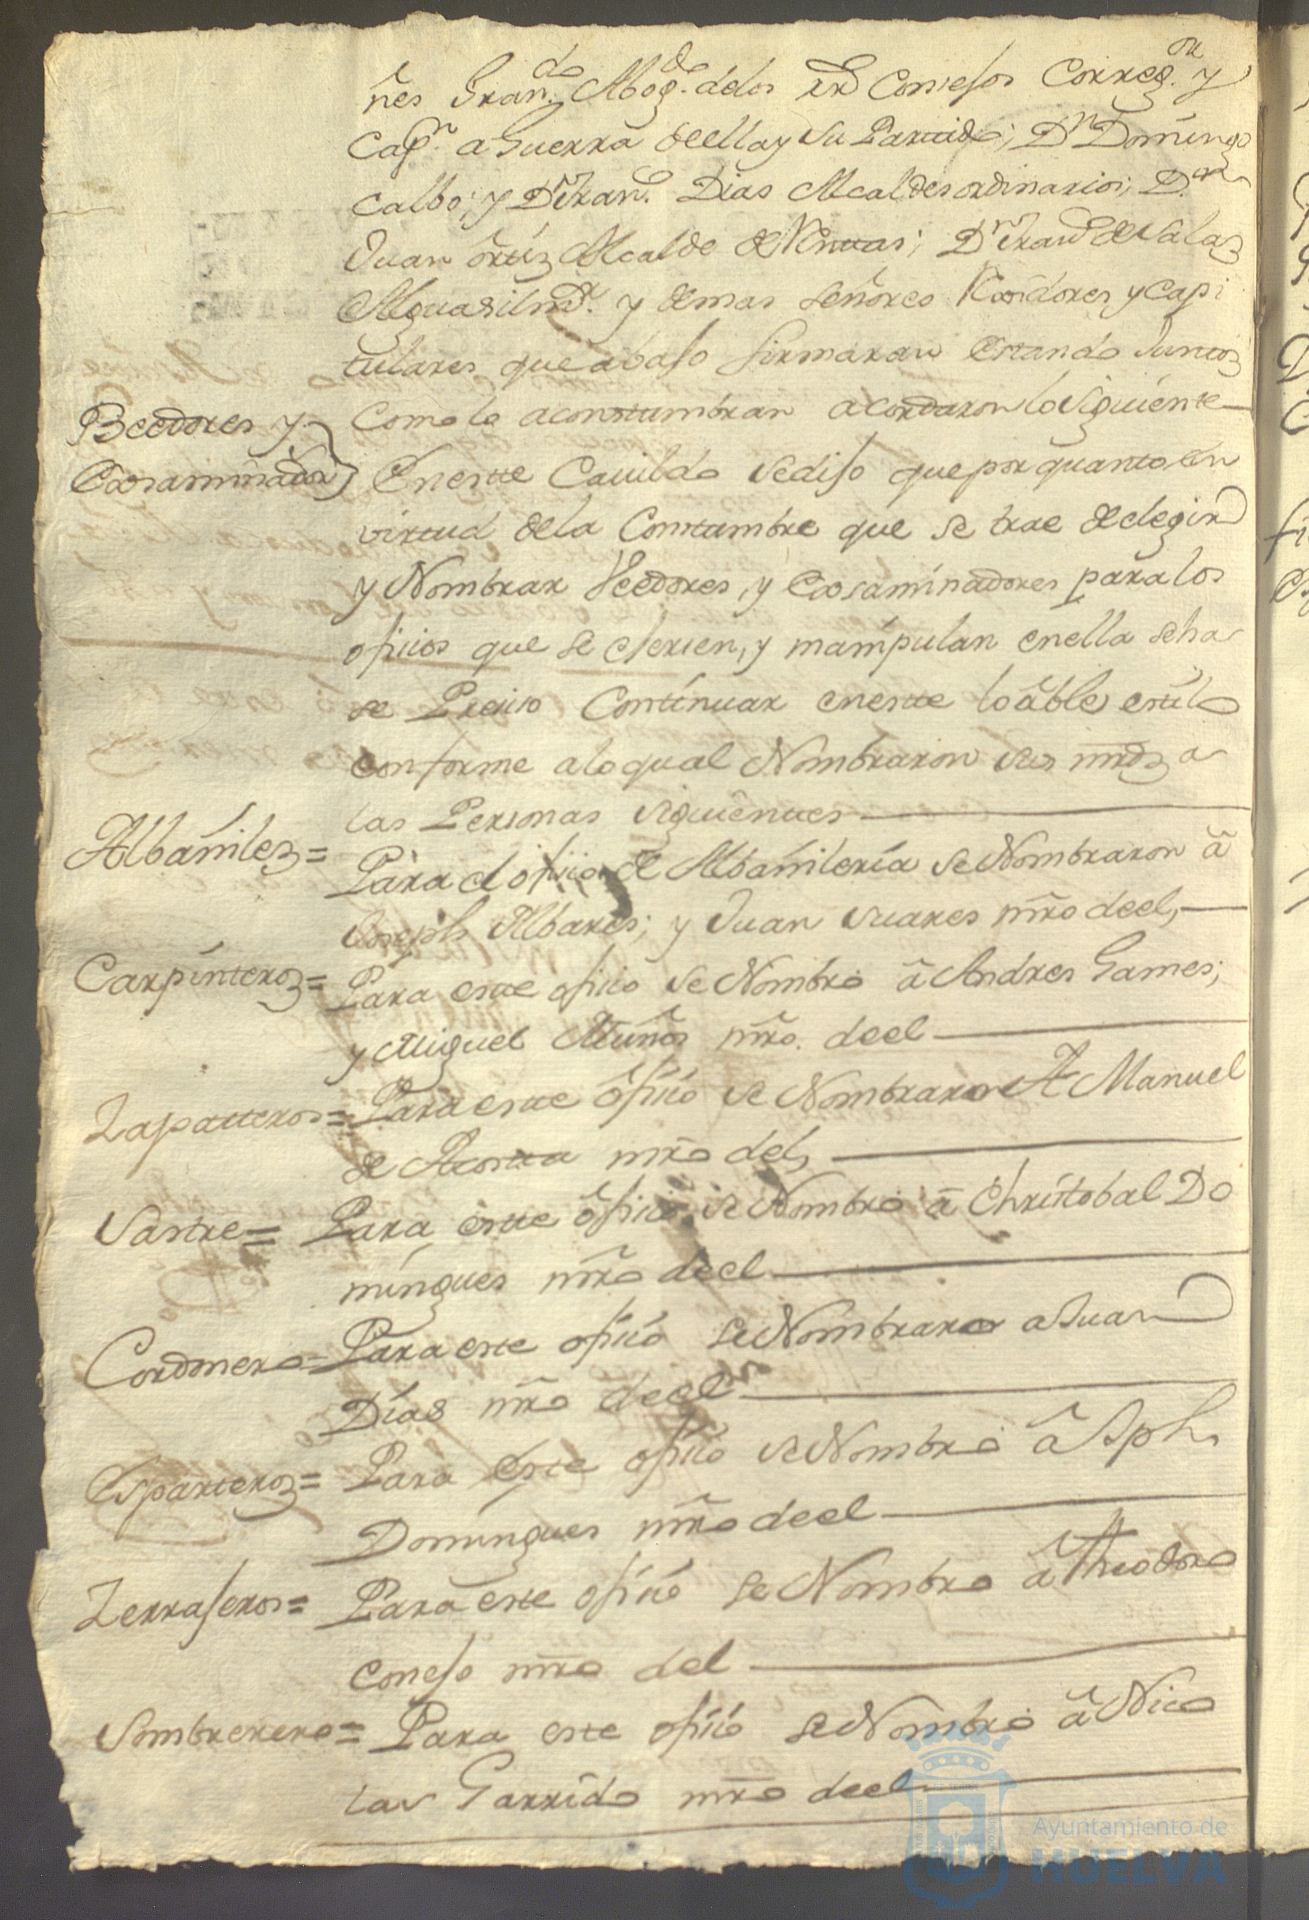 ñes Gran.do Abog.do delos Rs Consejos Correg.or y
Cap.n a Guerra de ella y Su Partido; D.n Domingo
calbo; y D.n Fran.co Dias Alcaldes ordinarios; D.n
Juan ôrtiz Alcalde de Nuuas; D.n Fran.co de Salaz
Alguasil m.or y demas señores Rexidores y Capi
tulares que abajo firmaran Estando Juntos
Como lo aconstumbran acordaron lo siguiente
Beedores y
Exsaminador
En este Cavildo se dijo que por quanto en
virtud de la Constumbre que se trae de elegir
y Nombrar Veedores, y Exsaminadores para los
oficios que se ejersen, y manipulan en ella se ha
se Presiso Continuar en este loable estilo
conforme a lo qual Nombraron sus mrds a
las Personas siguientes
Albañiles =
Para el ofisio de Albañileria se Nombraron â
Joseph Albares; y Juan Suares mro de el,
Carpinteros =
Para este ofisio se Nombro â Andres Games;
y Miguel Muños mro. de el
Zapateros =
Para este ofisio se Nombraron A Manuel
de Acosta mro del,
Sastre =
Para este ofisio se Nombro â Christobal Do
mingues mro de el
Cordonero =
Para este ofisio se Nombraro a Juan
Dias mro de el
Esparteros =
Para este ofisio se Nombro â Jph.
Domingues mro de el
Zerrajeros =
Para este ofisio se Nombro â Theodoro
Conejo mro del
Sombrerero =
Para este ofisio se Nombro â Nico
las Garrido mro de el
Ayuntamiento de
HUELVA